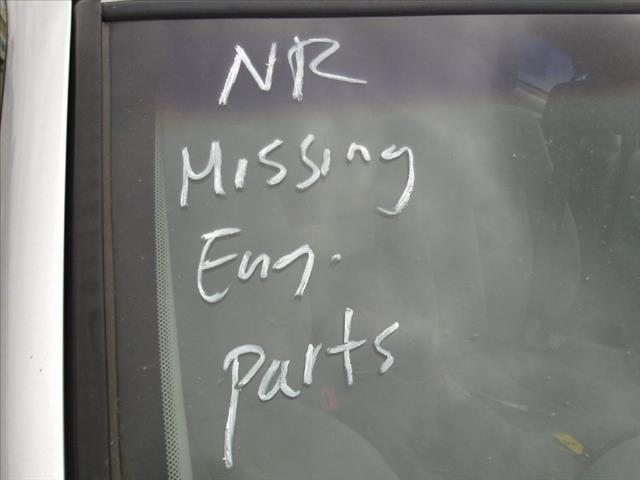 NR
Missing
Eng.
parts